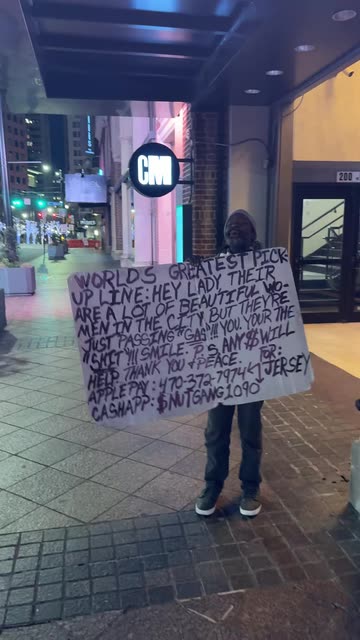 CM
200
WORLDS GREATEST PICK-
UP LINE: HEY LADY THEIR
ARE A LOT OF BEAUTIFUL WO-
MEN IN THE CITY BUT THEY'RE
JUST PASSING "GAS"!!! YOU, YOUR THE
"SHIT"!!! SMILE P.S ANY $ WILL
HELP THANK YOU & PEACE. FOR:
APPLE PAY: 470-372-7974 JERSEY
CASHAPP: $NUTGANG1090